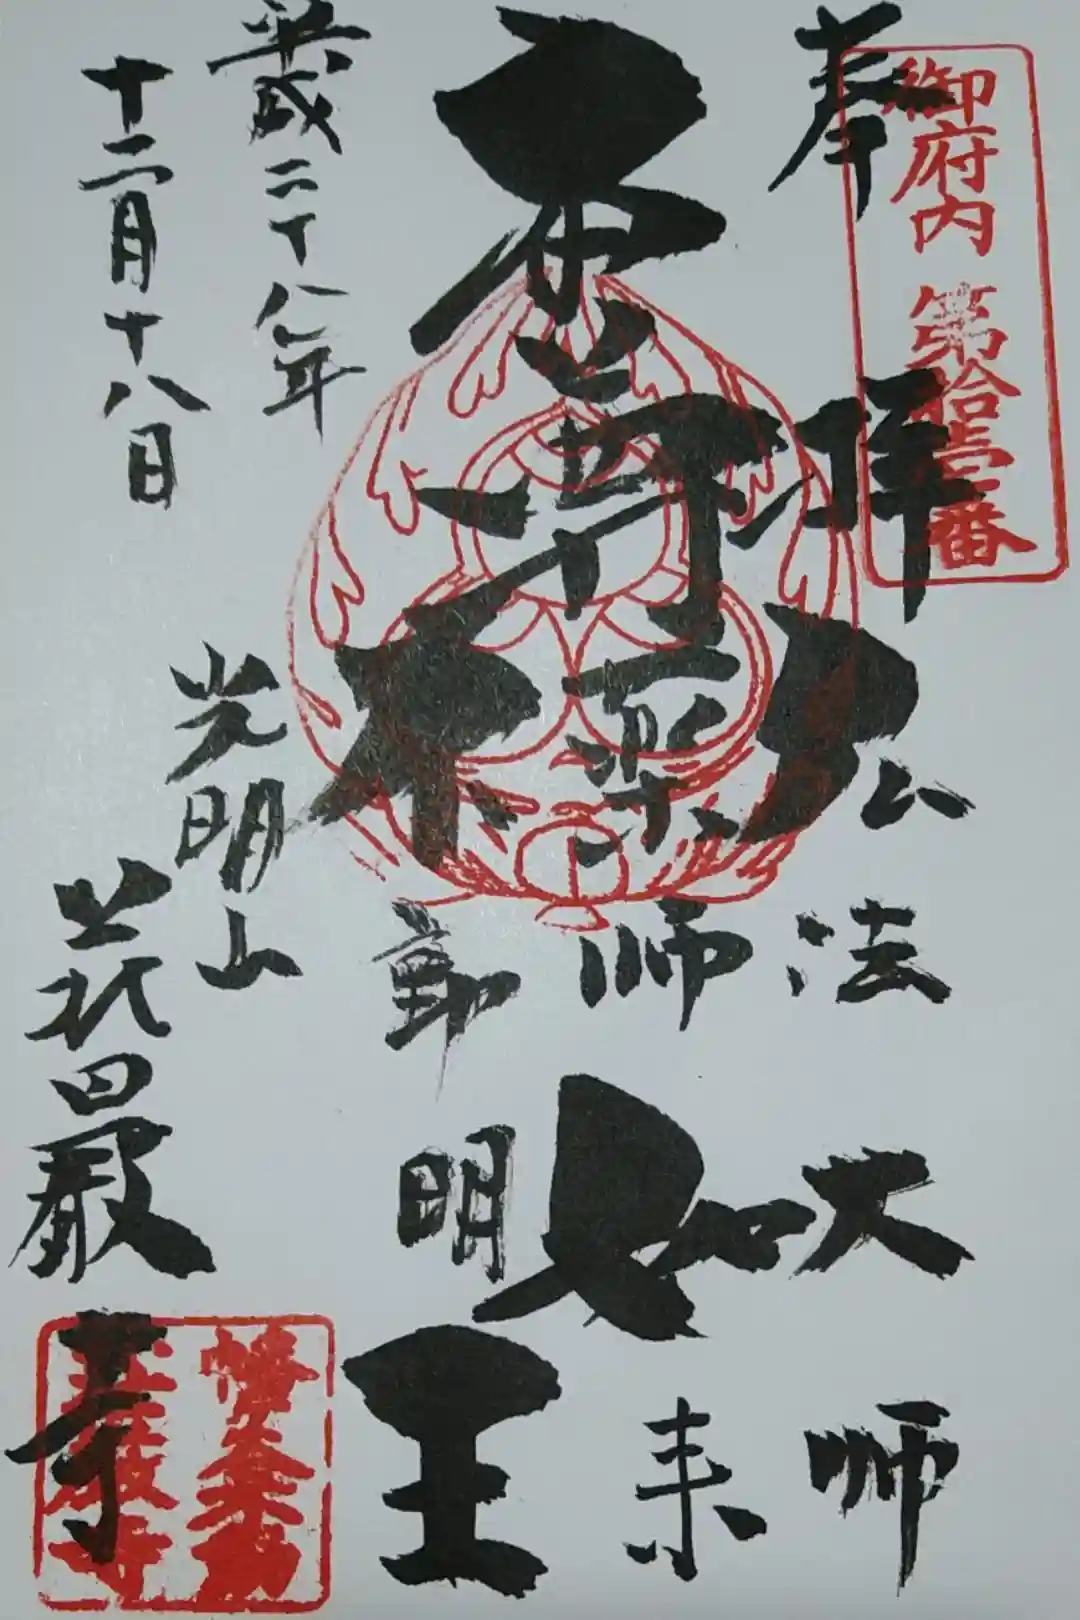 御府内 第拾壱番
奉拝
弘法大師
薬師如来
不動明王
平成二十八年
十二月十八日
光明山
荘厳寺